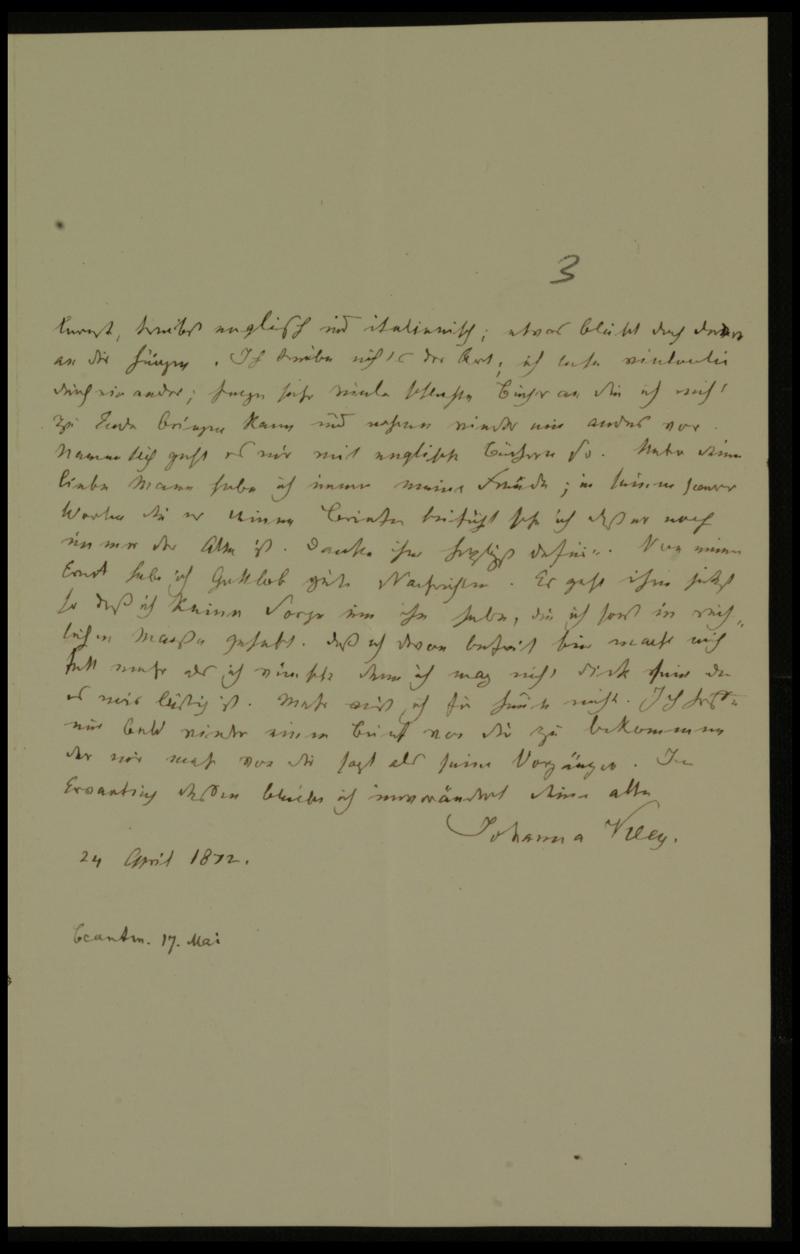 3
lernst, treibst englisch und italienisch; etwas bleibt doch davon
an dir hängen. Ich treibe nichts der Art; ich lese
durch einander; fange sehr viele schlechte Bücher an die ich nicht
zu Ende bringen kann und nehme wieder ein andres vor.
Namentlich geht es mir mit englischen Büchern so. Über deinen
lieben Mann habe ich immer meine Freude; in seinen paar
Worten die er deinen Briefen beifügt seh ich daß er noch
immer der Alte ist. Danke ihm herzlichst dafür. Von meinem
Ernst habe ich Gottlob gute Nachrichten. Es geht ihm jetzt
so daß ich keine Sorge um ihn habe, die ich sonst in reich„
lichem Maaße gehabt. daß ich davon befreit bin macht mich
fett mehr als ich wünschte denn ich mag nicht dick sein da
es mir lästig ist. Mehr weiß ich für heute nicht. Ich hoffe
nur bald wieder einen Brief von dir zu bekommen
der mir mehr von dir sagt als seine Vorgänger. In
Erwartung dessen bleibe ich unverändert deine alte
Johanna
24 April 1872.
beantw. 17. Mai